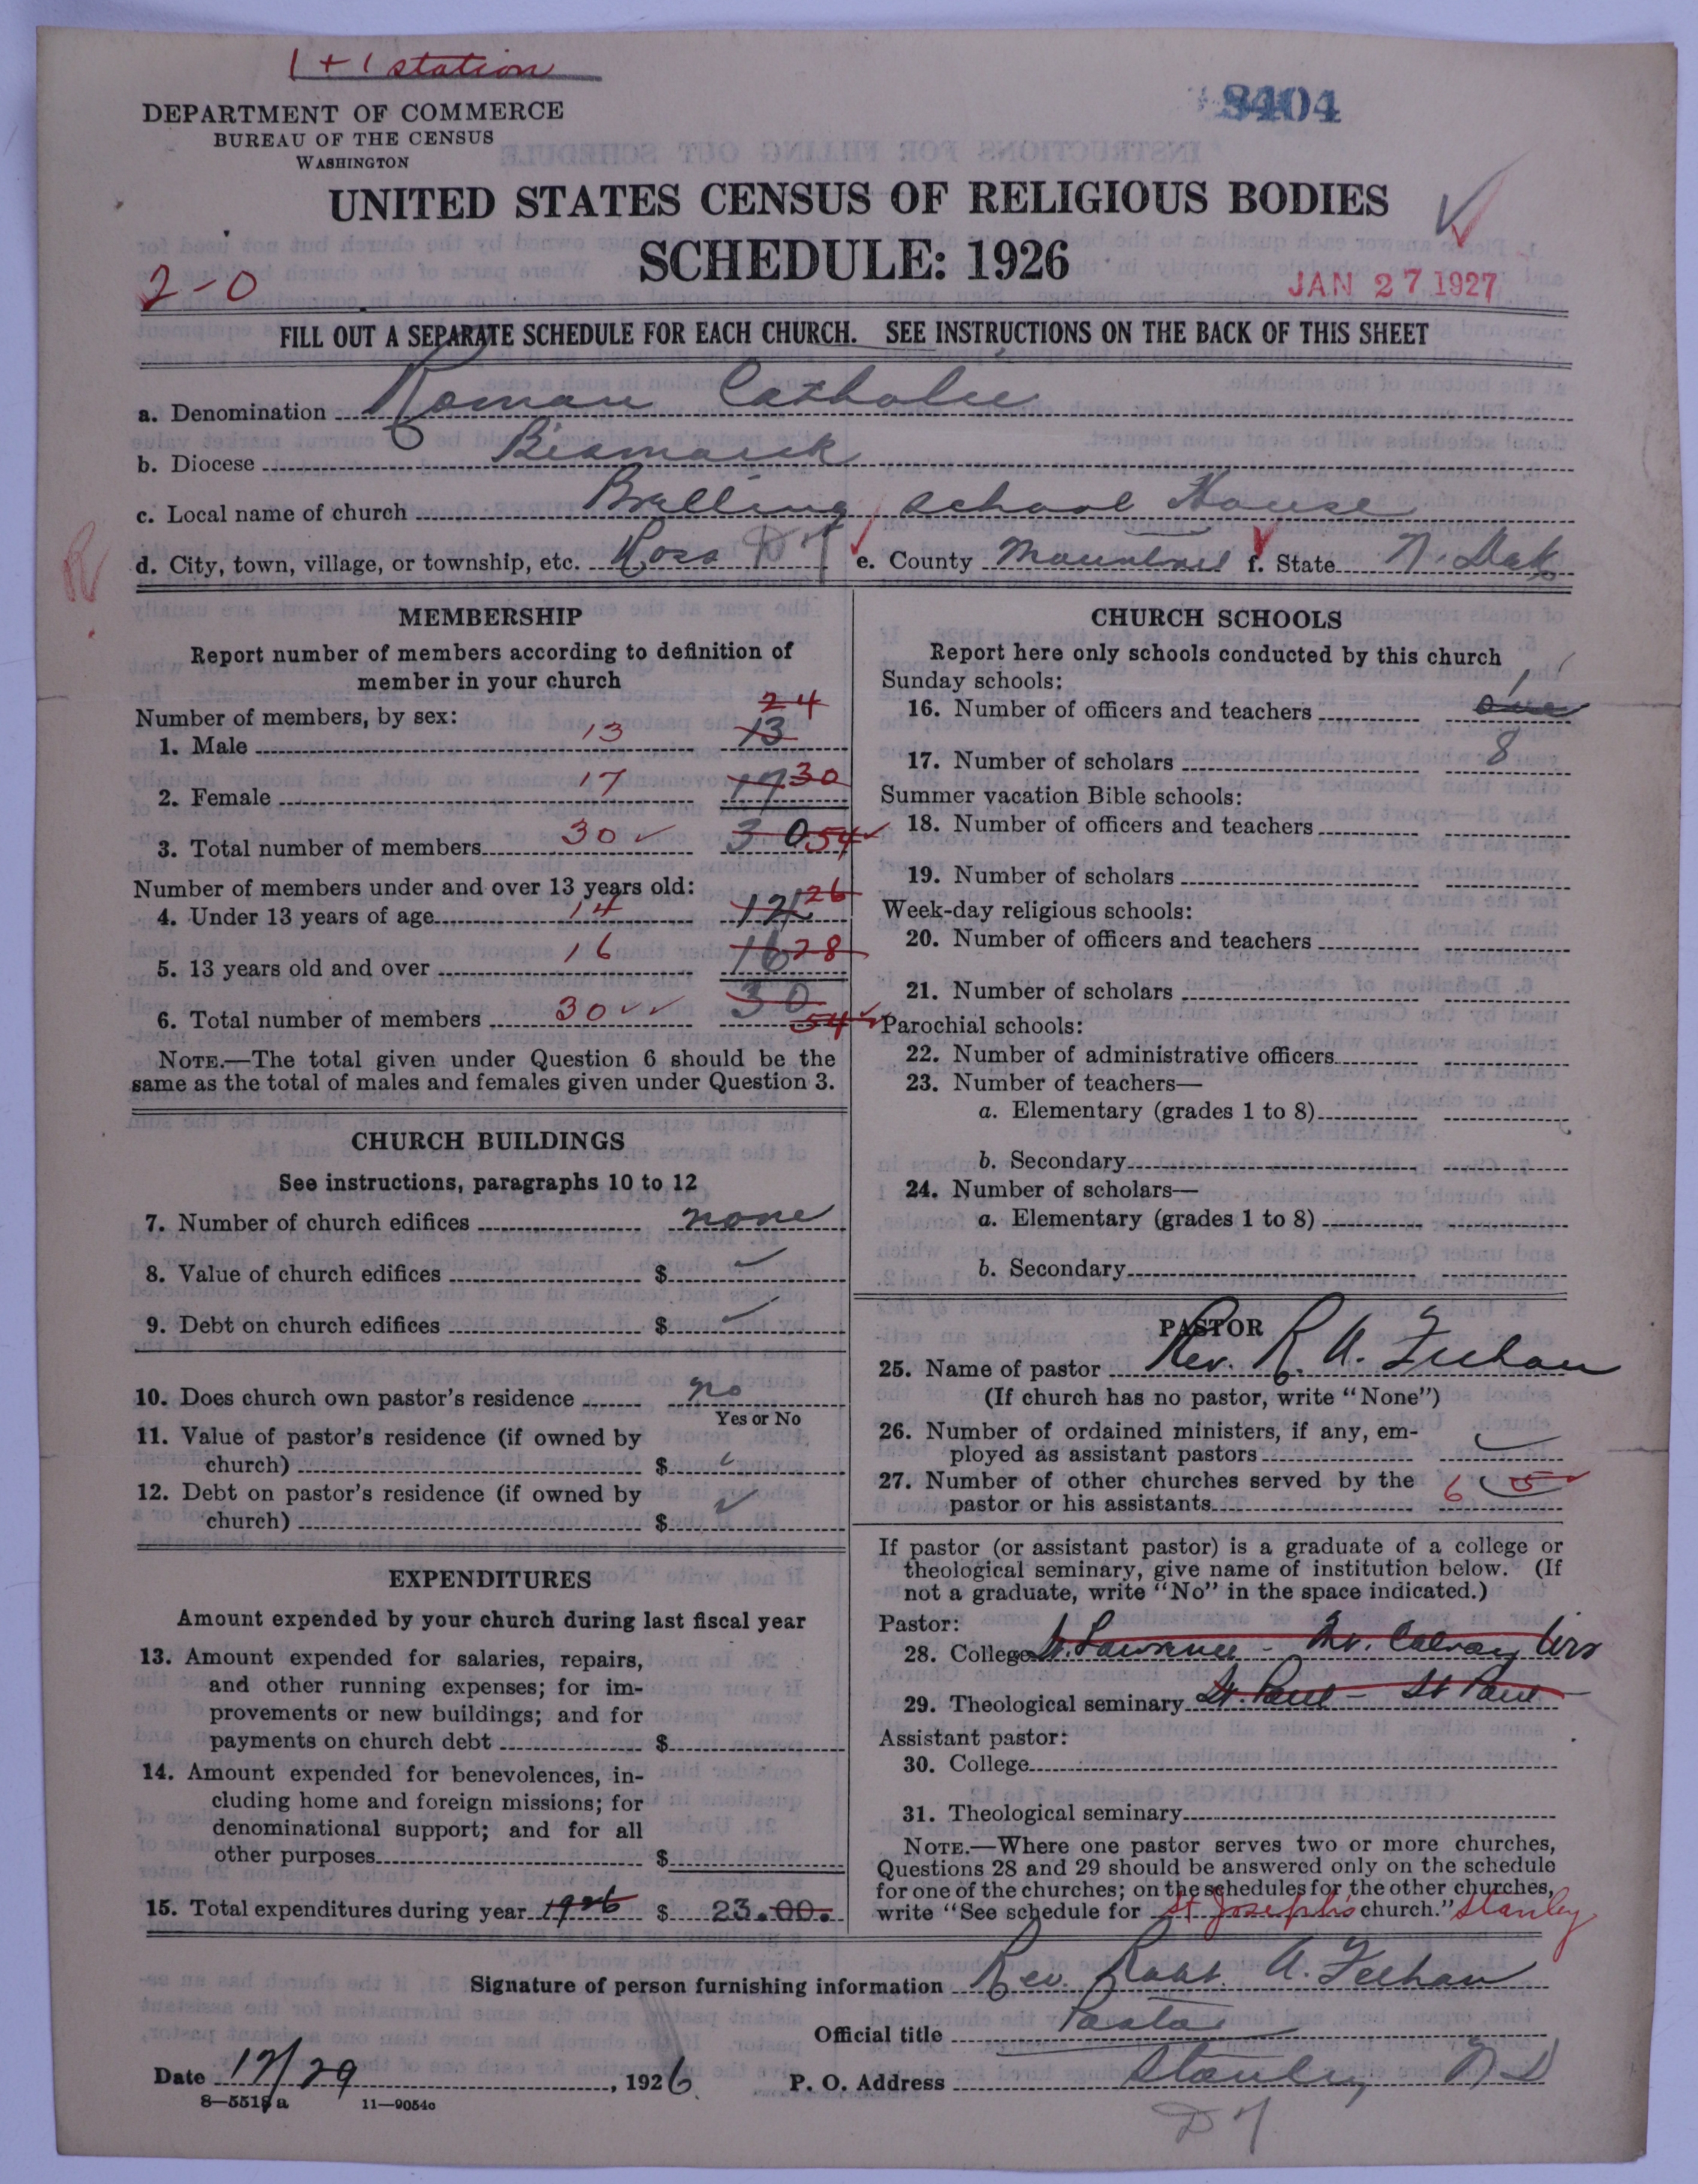 1 + 1 station
DEPARTMENT OF COMMERCE
BUREAU OF THE CENSUS
WASHINGTON
8404
UNITED STATES CENSUS OF RELIGIOUS BODIES
SCHEDULE: 1926
2-0
JAN 27 1927
FILL OUT A SEPARATE SCHEDULE FOR EACH CHURCH. SEE INSTRUCTIONS ON THE BACK OF THIS SHEET
a. Denomination Roman Catholic
b. Diocese Bismarck
c. Local name of church school House
d. City, town, village, or township, etc. Ross e. County Mountrail f. State N. Dak
R
MEMBERSHIP
Report number of members according to definition of
member in your church
Number of members, by sex:
24
1. Male 13 13
2. Female 17 17 30
3. Total number of members 30 30 54
Number of members under and over 13 years old:
4. Under 13 years of age 14 14 26
5. 13 years old and over 16 16 28
6. Total number of members 30 30 54
NOTE.—The total given under Question 6 should be the
same as the total of males and females given under Question 3.
CHURCH BUILDINGS
See instructions, paragraphs 10 to 12
7. Number of church edifices none
8. Value of church edifices $
9. Debt on church edifices $
10. Does church own pastor's residence no
Yes or No
11. Value of pastor's residence (if owned by
church) $
12. Debt on pastor's residence (if owned by
church) $
EXPENDITURES
Amount expended by your church during last fiscal year
13. Amount expended for salaries, repairs,
and other running expenses; for im-
provements or new buildings; and for
payments on church debt $
14. Amount expended for benevolences, in-
cluding home and foreign missions; for
denominational support; and for all
other purposes $
15. Total expenditures during year 1926 $ 23.00.
CHURCH SCHOOLS
Report here only schools conducted by this church
Sunday schools:
16. Number of officers and teachers 1 one
17. Number of scholars 8
Summer vacation Bible schools:
18. Number of officers and teachers
19. Number of scholars
Week-day religious schools:
20. Number of officers and teachers
21. Number of scholars
Parochial schools:
22. Number of administrative officers
23. Number of teachers—
a. Elementary (grades 1 to 8)
b. Secondary
24. Number of scholars—
a. Elementary (grades 1 to 8)
b. Secondary
PASTOR
25. Name of pastor Rev. R. A. Feehan
(If church has no pastor, write "None")
26. Number of ordained ministers, if any, em-
ployed as assistant pastors
27. Number of other churches served by the
pastor or his assistants 6 5
If pastor (or assistant pastor) is a graduate of a college or
theological seminary, give name of institution below. (If
not a graduate, write "No" in the space indicated.)
Pastor:
28. College St. Lawrence - Mt. Calvary Wis
29. Theological seminary St. Paul - St Paul
Assistant pastor:
30. College
31. Theological seminary
NOTE.—Where one pastor serves two or more churches,
Questions 28 and 29 should be answered only on the schedule
for one of the churches; on the schedules for the other churches,
write "See schedule for St Joseph's church." Stanley
Signature of person furnishing information Rev. Robt. A. Feehan
Official title Pastor
Date 12/29, 1926 P. O. Address Stanley N D
8—5518 a 11—9054c